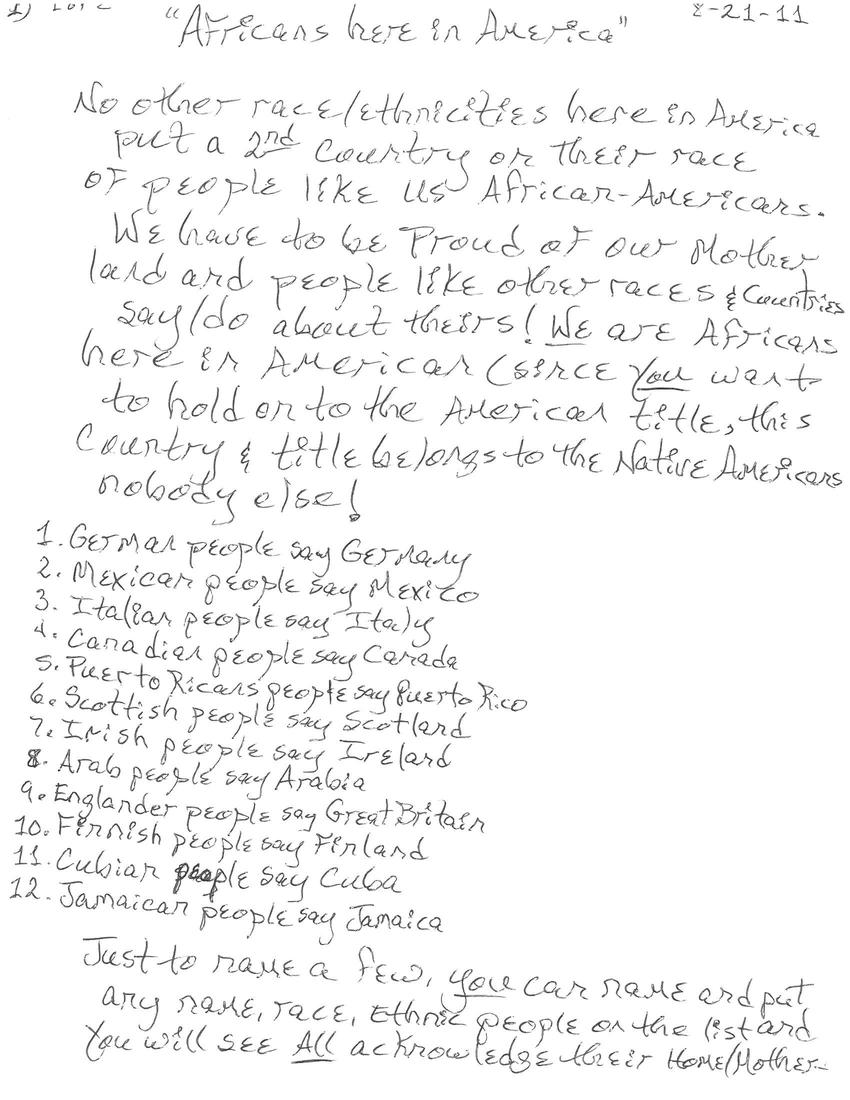 1) 1 of 2 "Africans here in America" 8-21-11
No other race/ethnicities here in America
put a 2nd country on their race
of people like us African-Americans.
We have to be Proud of our Mother
land and people like other races & Countries
say/do about theirs! We are Africans
here in American (since You want
to hold on to the American title, this
Country & title belongs to the Native Americans
nobody else!
1. German people say Germany
2. Mexican people say Mexico
3. Italian people say Italy
4. Canadian people say Canada
5. Puerto Ricans people say Puerto Rico
6. Scottish people say Scotland
7. Irish people say Ireland
8. Arab people say Arabia
9. Englander people say Great Britain
10. Finnish people say Finland
11. Cubian people say Cuba
12. Jamaican people say Jamaica
Just to name a few, you can name and put
any name, race, Ethnic people on the list and
You will see All acknowledge their Home/Mother-